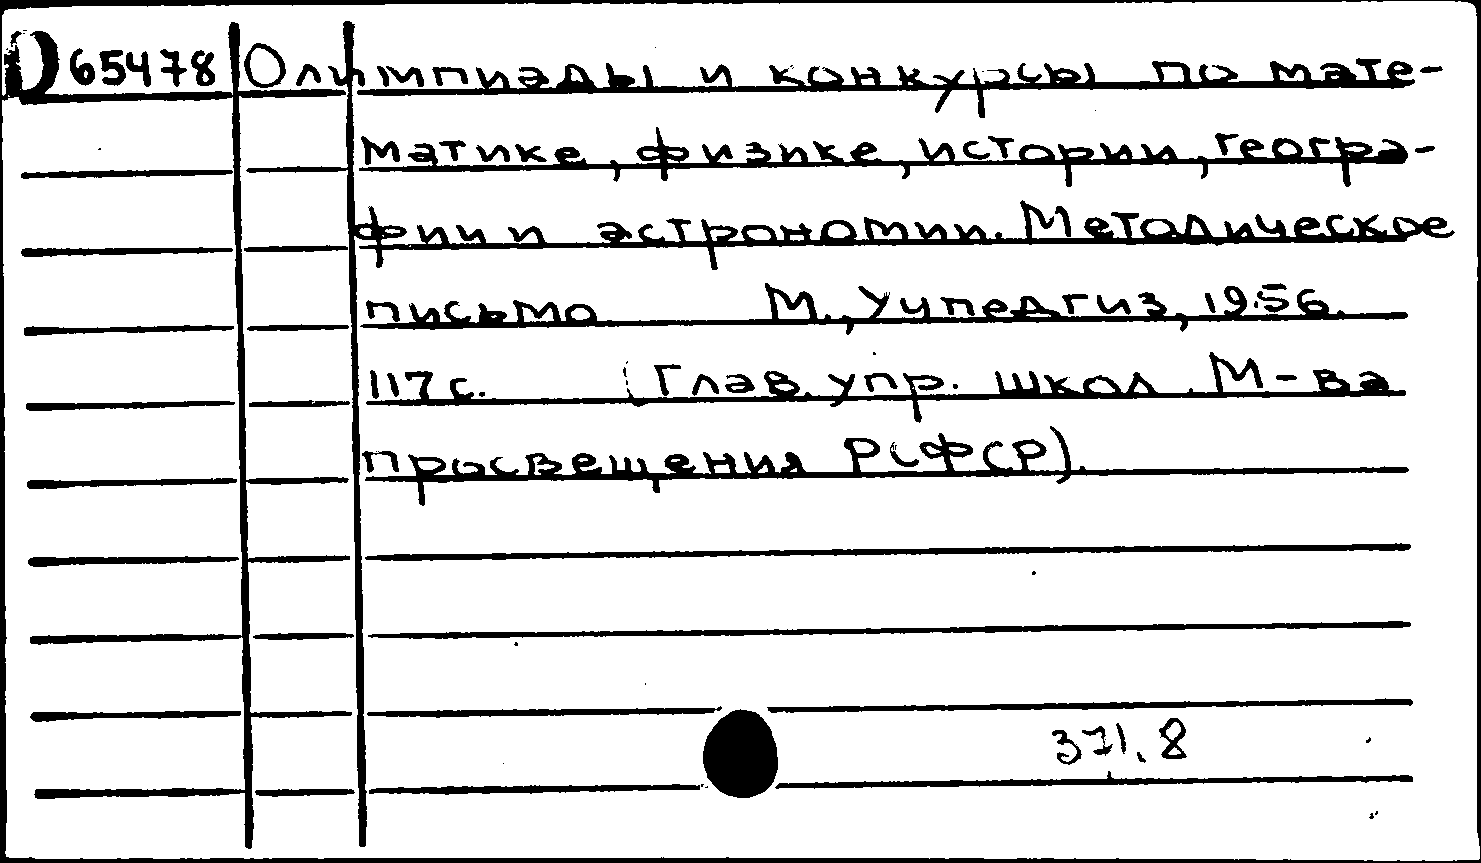 D 65478 Олимпиады и конкурсы по мате-
матике, физике, истории, геогра-
фии и астрономии. Методическое
письмо М., Учпедгиз, 1956.
117 с. (Глав. упр. школ. М-ва
просвещения РСФСР).
371.8